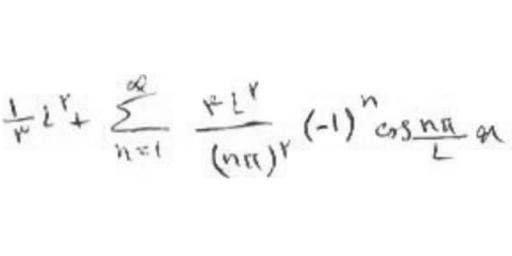 \frac{۱}{۳} L^۲ + \sum_{n=۱}^{\infty} \frac{۴L^۲}{(nπ)^۲} (-۱)^n \cos \frac{nπ}{L} x